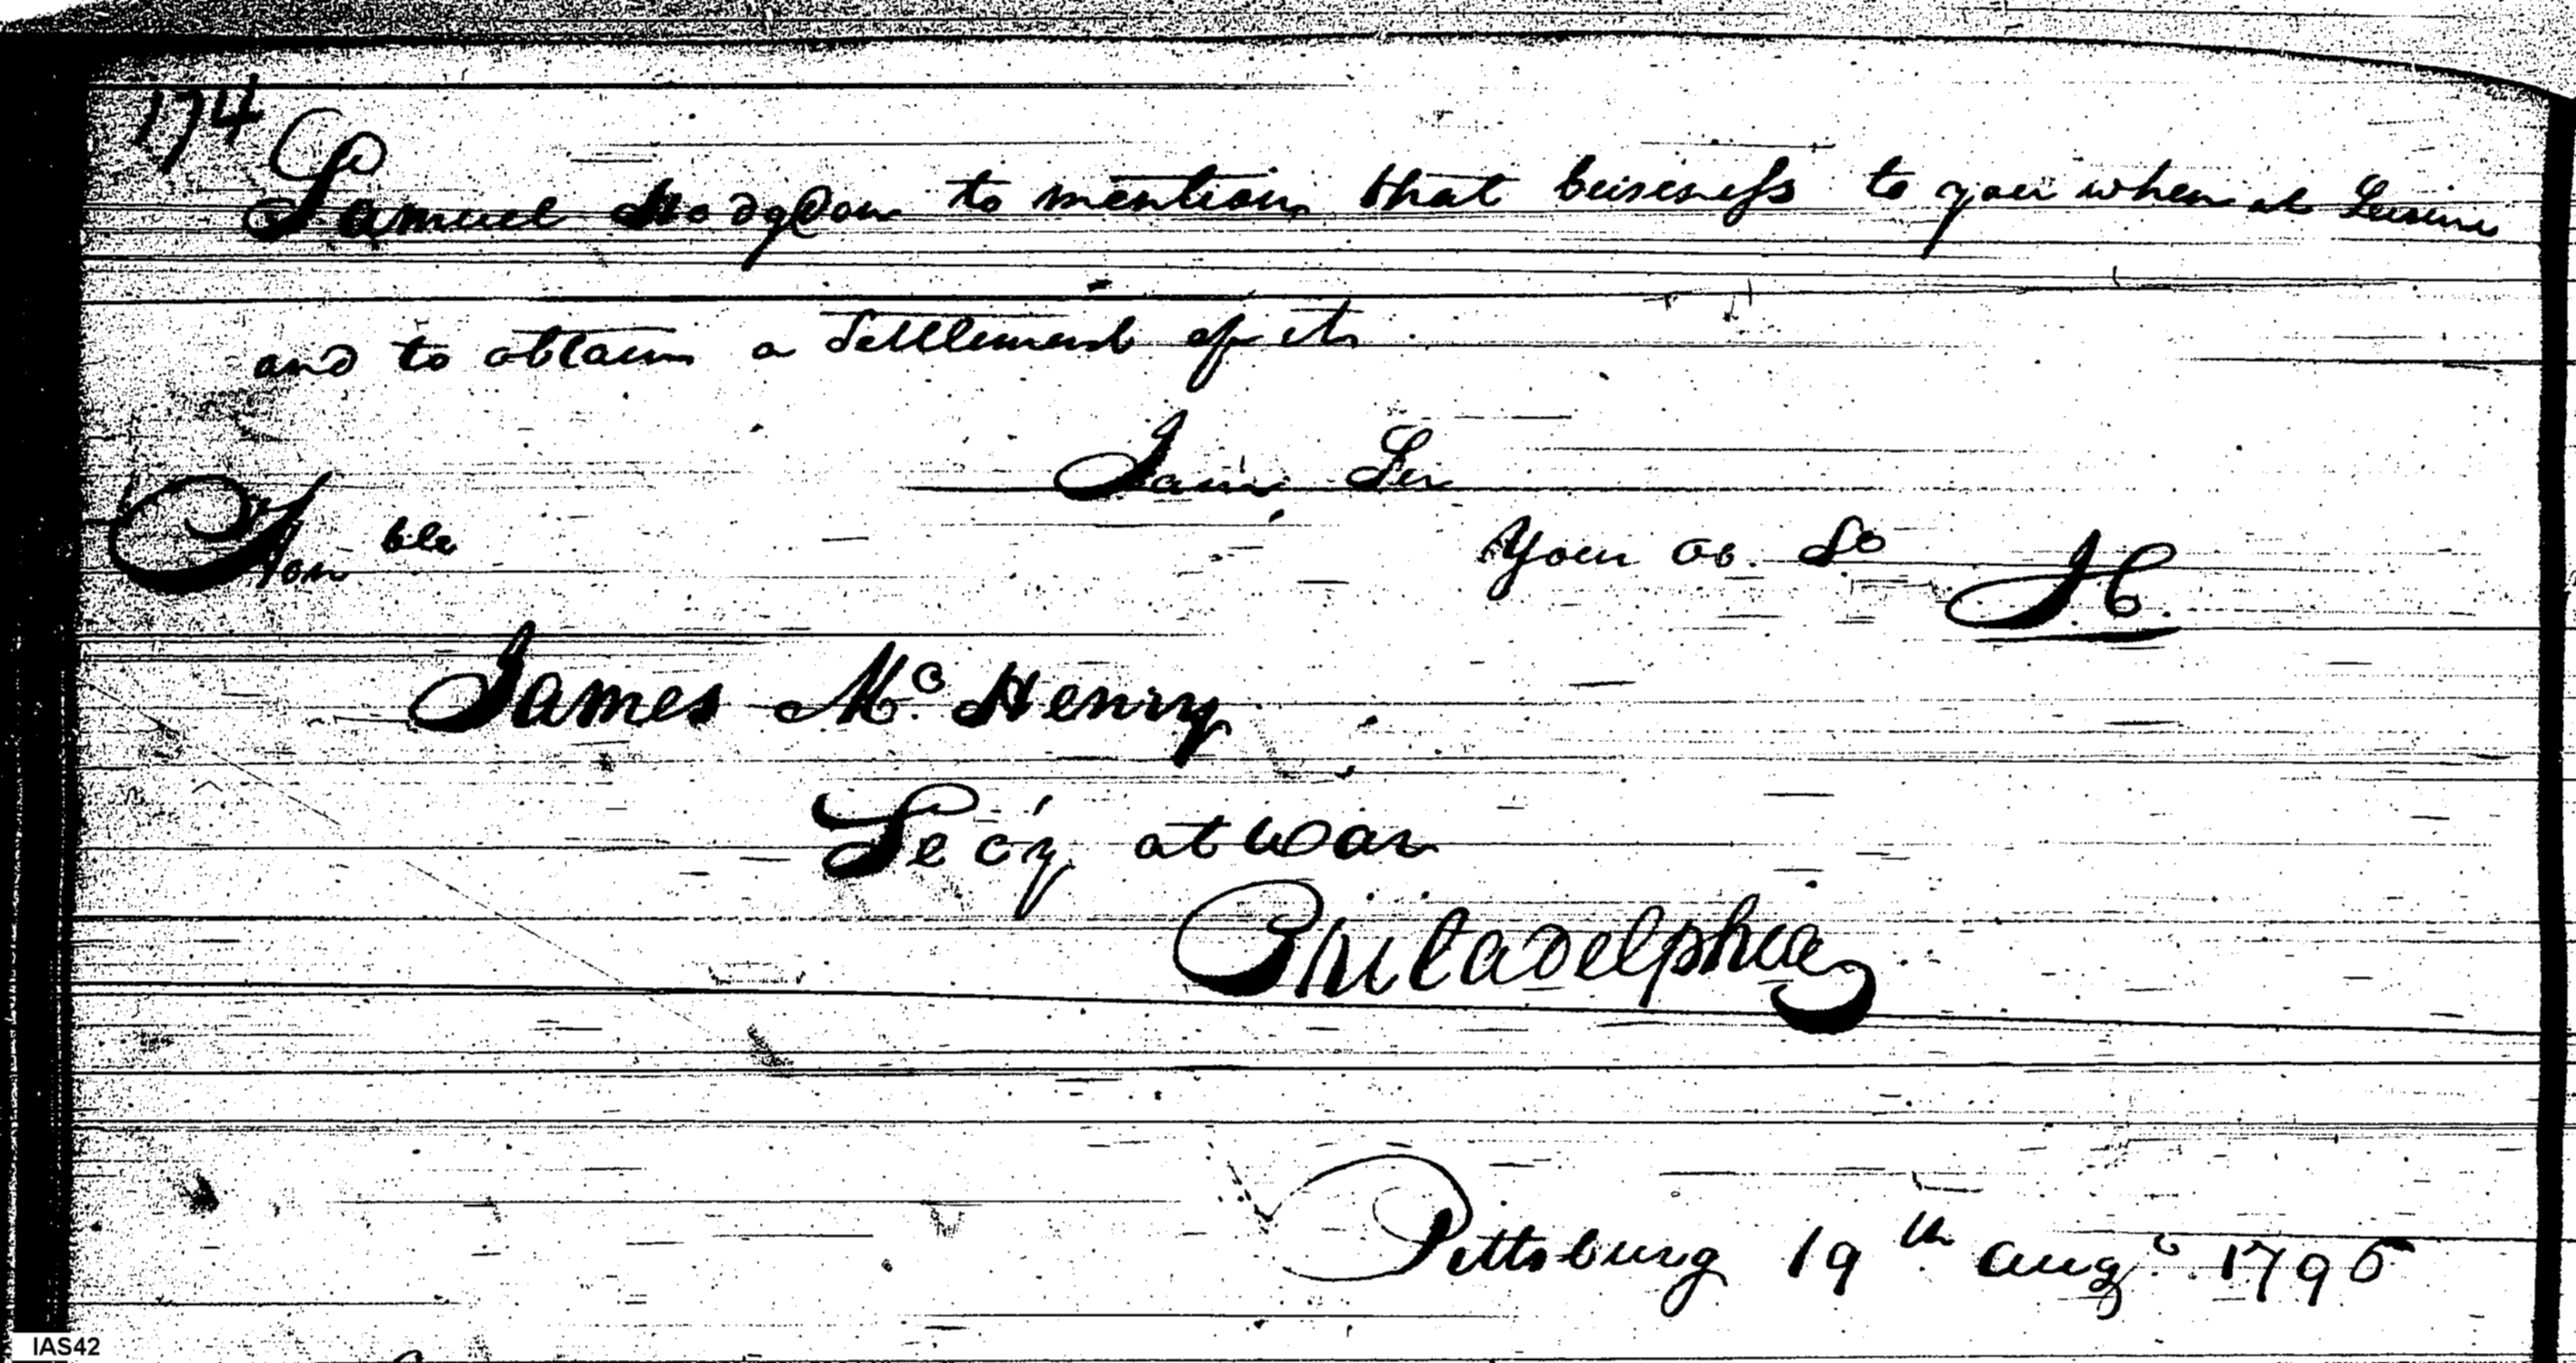 174
Samuel Hodgdon to mention that business to you when at Leisure
and to obtain a Settlement of it
I am Sir
Your ob. So
IC.
Honble
James Mc. Henry
Secy at War
Philadelphia
Pittsburg 19th Augo. 1796
IAS42